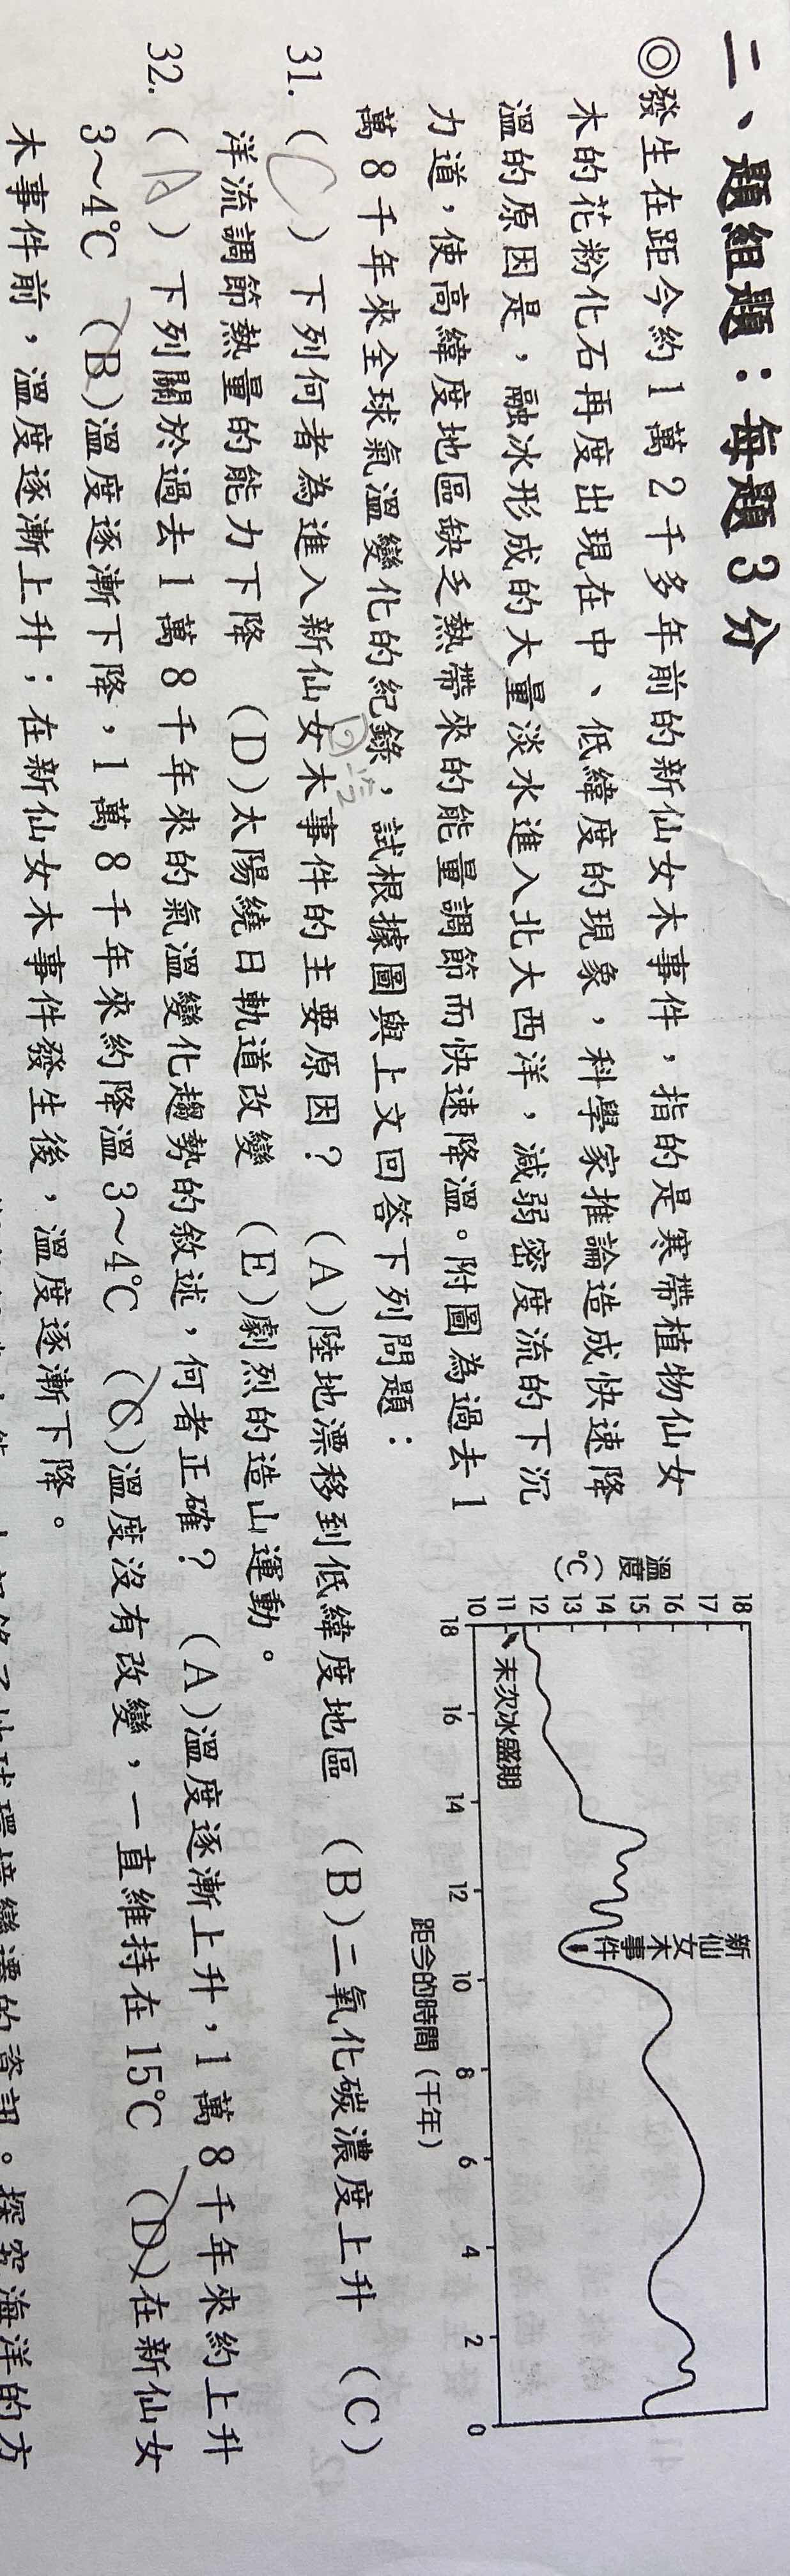 二、題組題：每題3分
◎發生在距今約1萬2千多年前的新仙女木事件，指的是寒帶植物仙女
木的花粉化石再度出現在中、低緯度的現象，科學家推論造成快速降
溫的原因是，融冰形成的大量淡水進入北大西洋，減弱密度流的下沉
力道，使高緯度地區缺乏熱帶來的能量調節而快速降溫。附圖為過去1
萬8千年來全球氣溫變化的紀錄，試根據圖與上文回答下列問題：
溫度
(℃)
18
17
16
15
14
13
12
11
10
末次冰盛期
新仙女木事件
18 16 14 12 10 8 6 4 2 0
距今的時間（千年）
31.( C ) 下列何者為進入新仙女木事件的主要原因？ (A)陸地漂移到低緯度地區 (B)二氧化碳濃度上升 (C)
洋流調節熱量的能力下降 (D)太陽繞日軌道改變 (E)劇烈的造山運動。
32.( A ) 下列關於過去1萬8千年來的氣溫變化趨勢的敘述，何者正確？ (A)溫度逐漸上升，1萬8千年來約上升
3～4℃ (B)溫度逐漸下降，1萬8千年來約降溫3～4℃ (C)溫度沒有改變，一直維持在15℃ (D)在新仙女
木事件前，溫度逐漸上升；在新仙女木事件發生後，溫度逐漸下降。